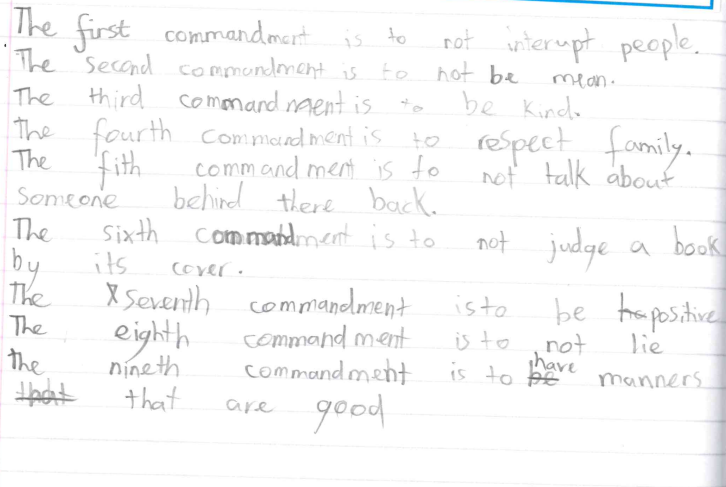 The first commandment is to not interupt people.
The second commandment is to not be mean.
The third commandment is to be kind.
The fourth commandment is to respect family.
The fith commandment is to not talk about
someone behind there back.
The sixth commandment is to not judge a book
by its cover.
The seventh commandment is to be positive
The eighth commandment is to not lie
the nineth commandment is to have manners
that are good